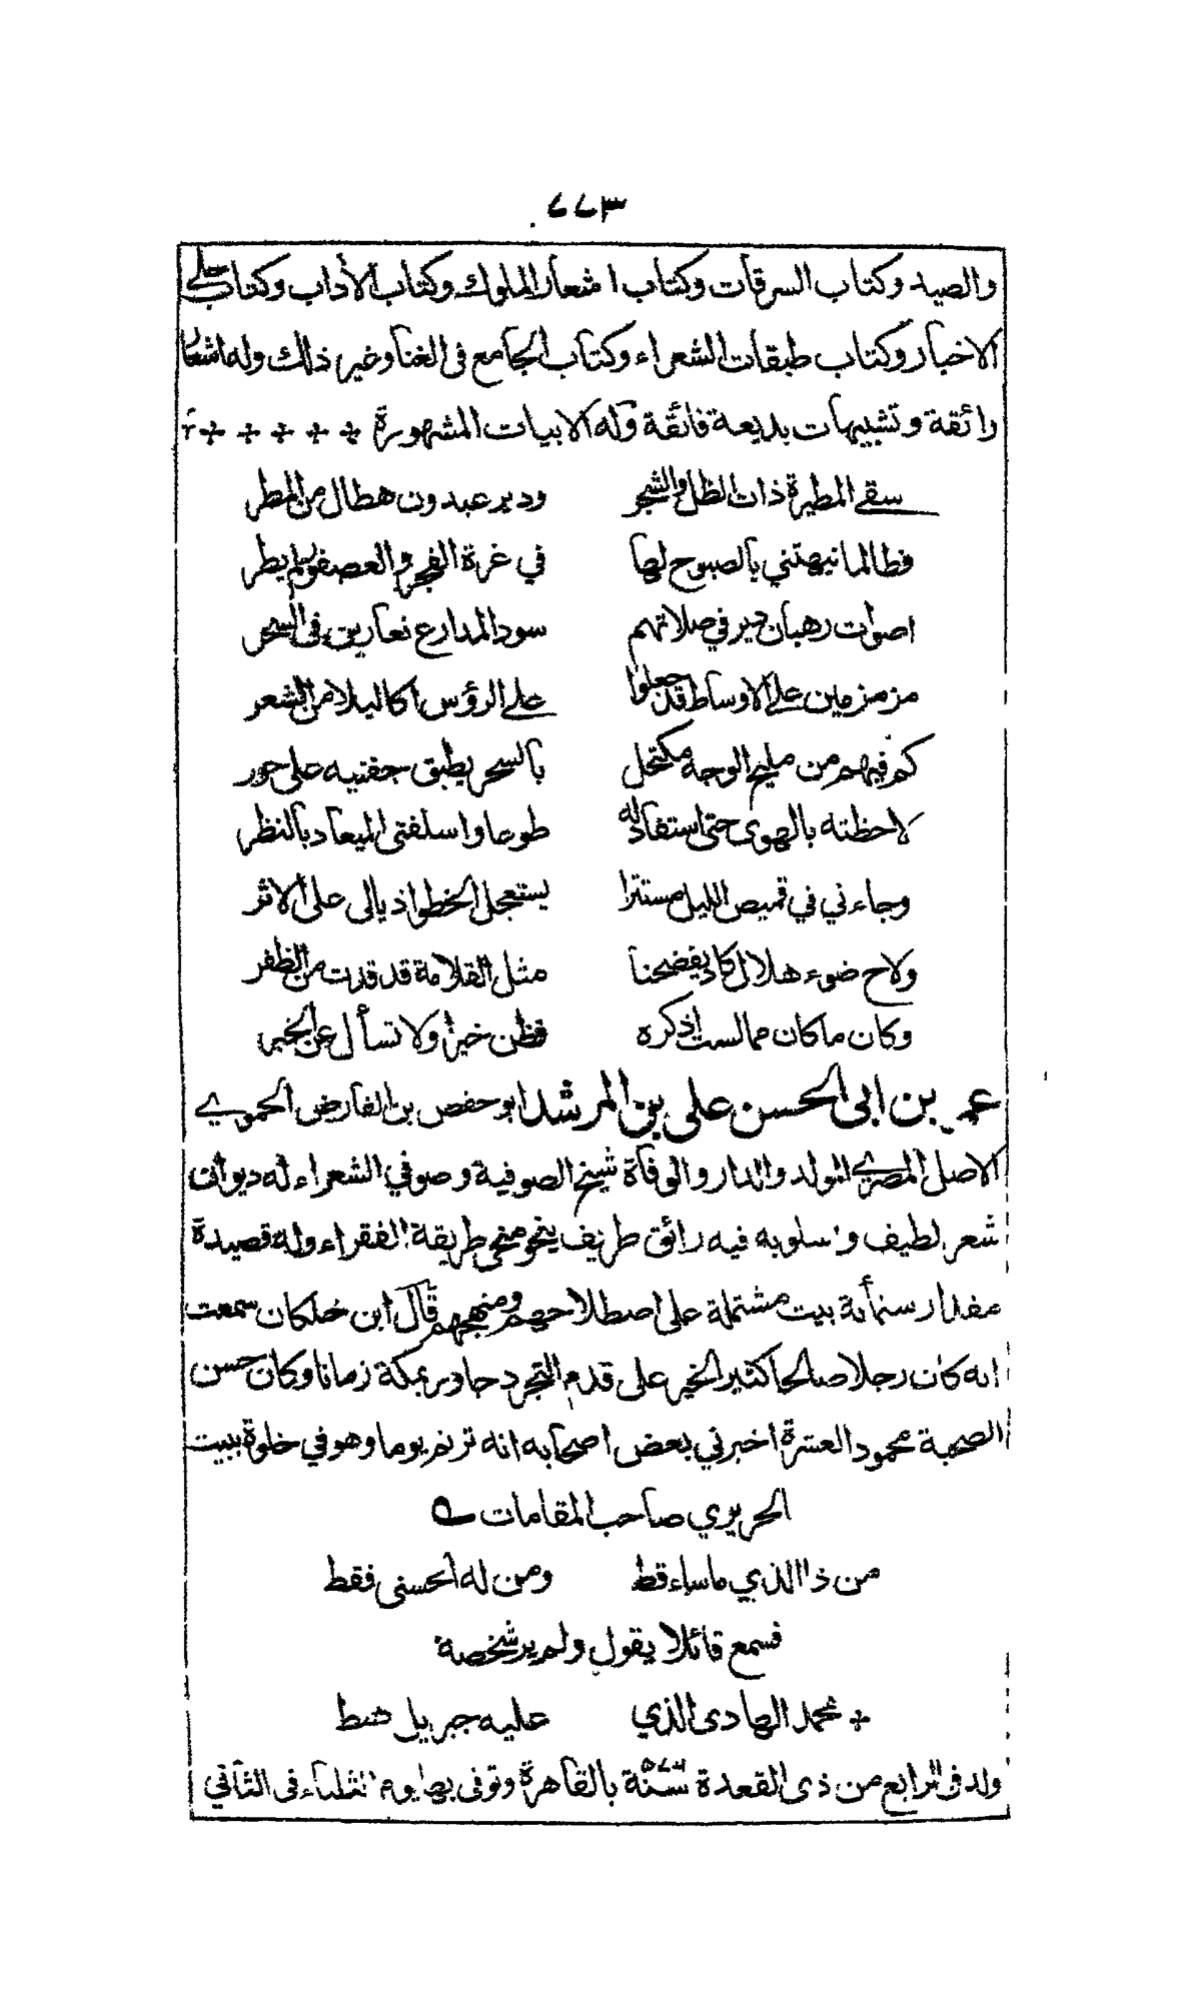 ٢٢٣
والصيد وكتاب السرقات وكتاب اشعار الملوك وكتاب الآداب وكتاب حلي
الاخبار وكتاب طبقات الشعراء وكتاب الجامع فى الغنا وغير ذلك وله اشعار
رائقة وتشبيهات بديعة فائقة وله الابيات المشهورة
سقى المطيرة ذات الظل والشجر ودير عبدون هطال من المطر
فطالما نبهتني بالصبوح لها في غرة الفجر والعصفور لم يطر
اصوات رهبان دير في صلاتهم سود المدارع نعارين فى السحر
مزمزمين على الاوساط قد جعلوا على الرؤس اكاليلا من الشعر
كم فيهم من مليح الوجه مكتحل بالسحر يطبق جفنيه على حور
لاحظته بالهوى حتى استقاد له طوعا واسلفنى الميعاد بالنظر
وجاءني في قميص الليل مستترا يستعجل الخطو اذيالى على الاثر
ولاح ضوء هلال كاد يفضحنا مثل القلامة قد قدت من الظفر
وكان ما كان مما لست اذكره فظن خيرا ولا تسأل عن الخبر
عمر بن ابى الحسن على بن المرشد ابو حفص بن الفارض الحموي
الاصل المصري المولد والدار والوفاة شيخ الصوفية وصوفي الشعراء له ديوان
شعر لطيف واسلوبه فيه رائق ظريف ينحو منحى طريقة الفقراء وله قصيدة
مقدار ستمائة بيت مشتملة على اصطلاحهم ومنهجهم قال ابن خلكان سمعت
انه كان رجلا صالحا كثير الخير على قدم التجرد جاور بمكة زمانا وكان حسن
الصحبة محمود العشرة اخبرني بعض اصحابه انه ترنم يوما وهو في خلوة ببيت
الحريري صاحب المقامات
من ذا الذي ما ساء قط ومن له الحسنى فقط
فسمع قائلا يقول ولم ير شخصه
محمد الهادى الذي عليه جبريل هبط
ولد فى الرابع من ذى القعدة سنة بالقاهرة وتوفى بها يوم الثلثاء فى الثانى